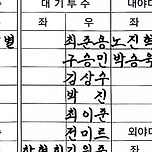 대기투수 내야
좌 우 좌
별 최준용 노진혁
구승민 박승욱
김상수
박진
최이준
전미르 외야
좌